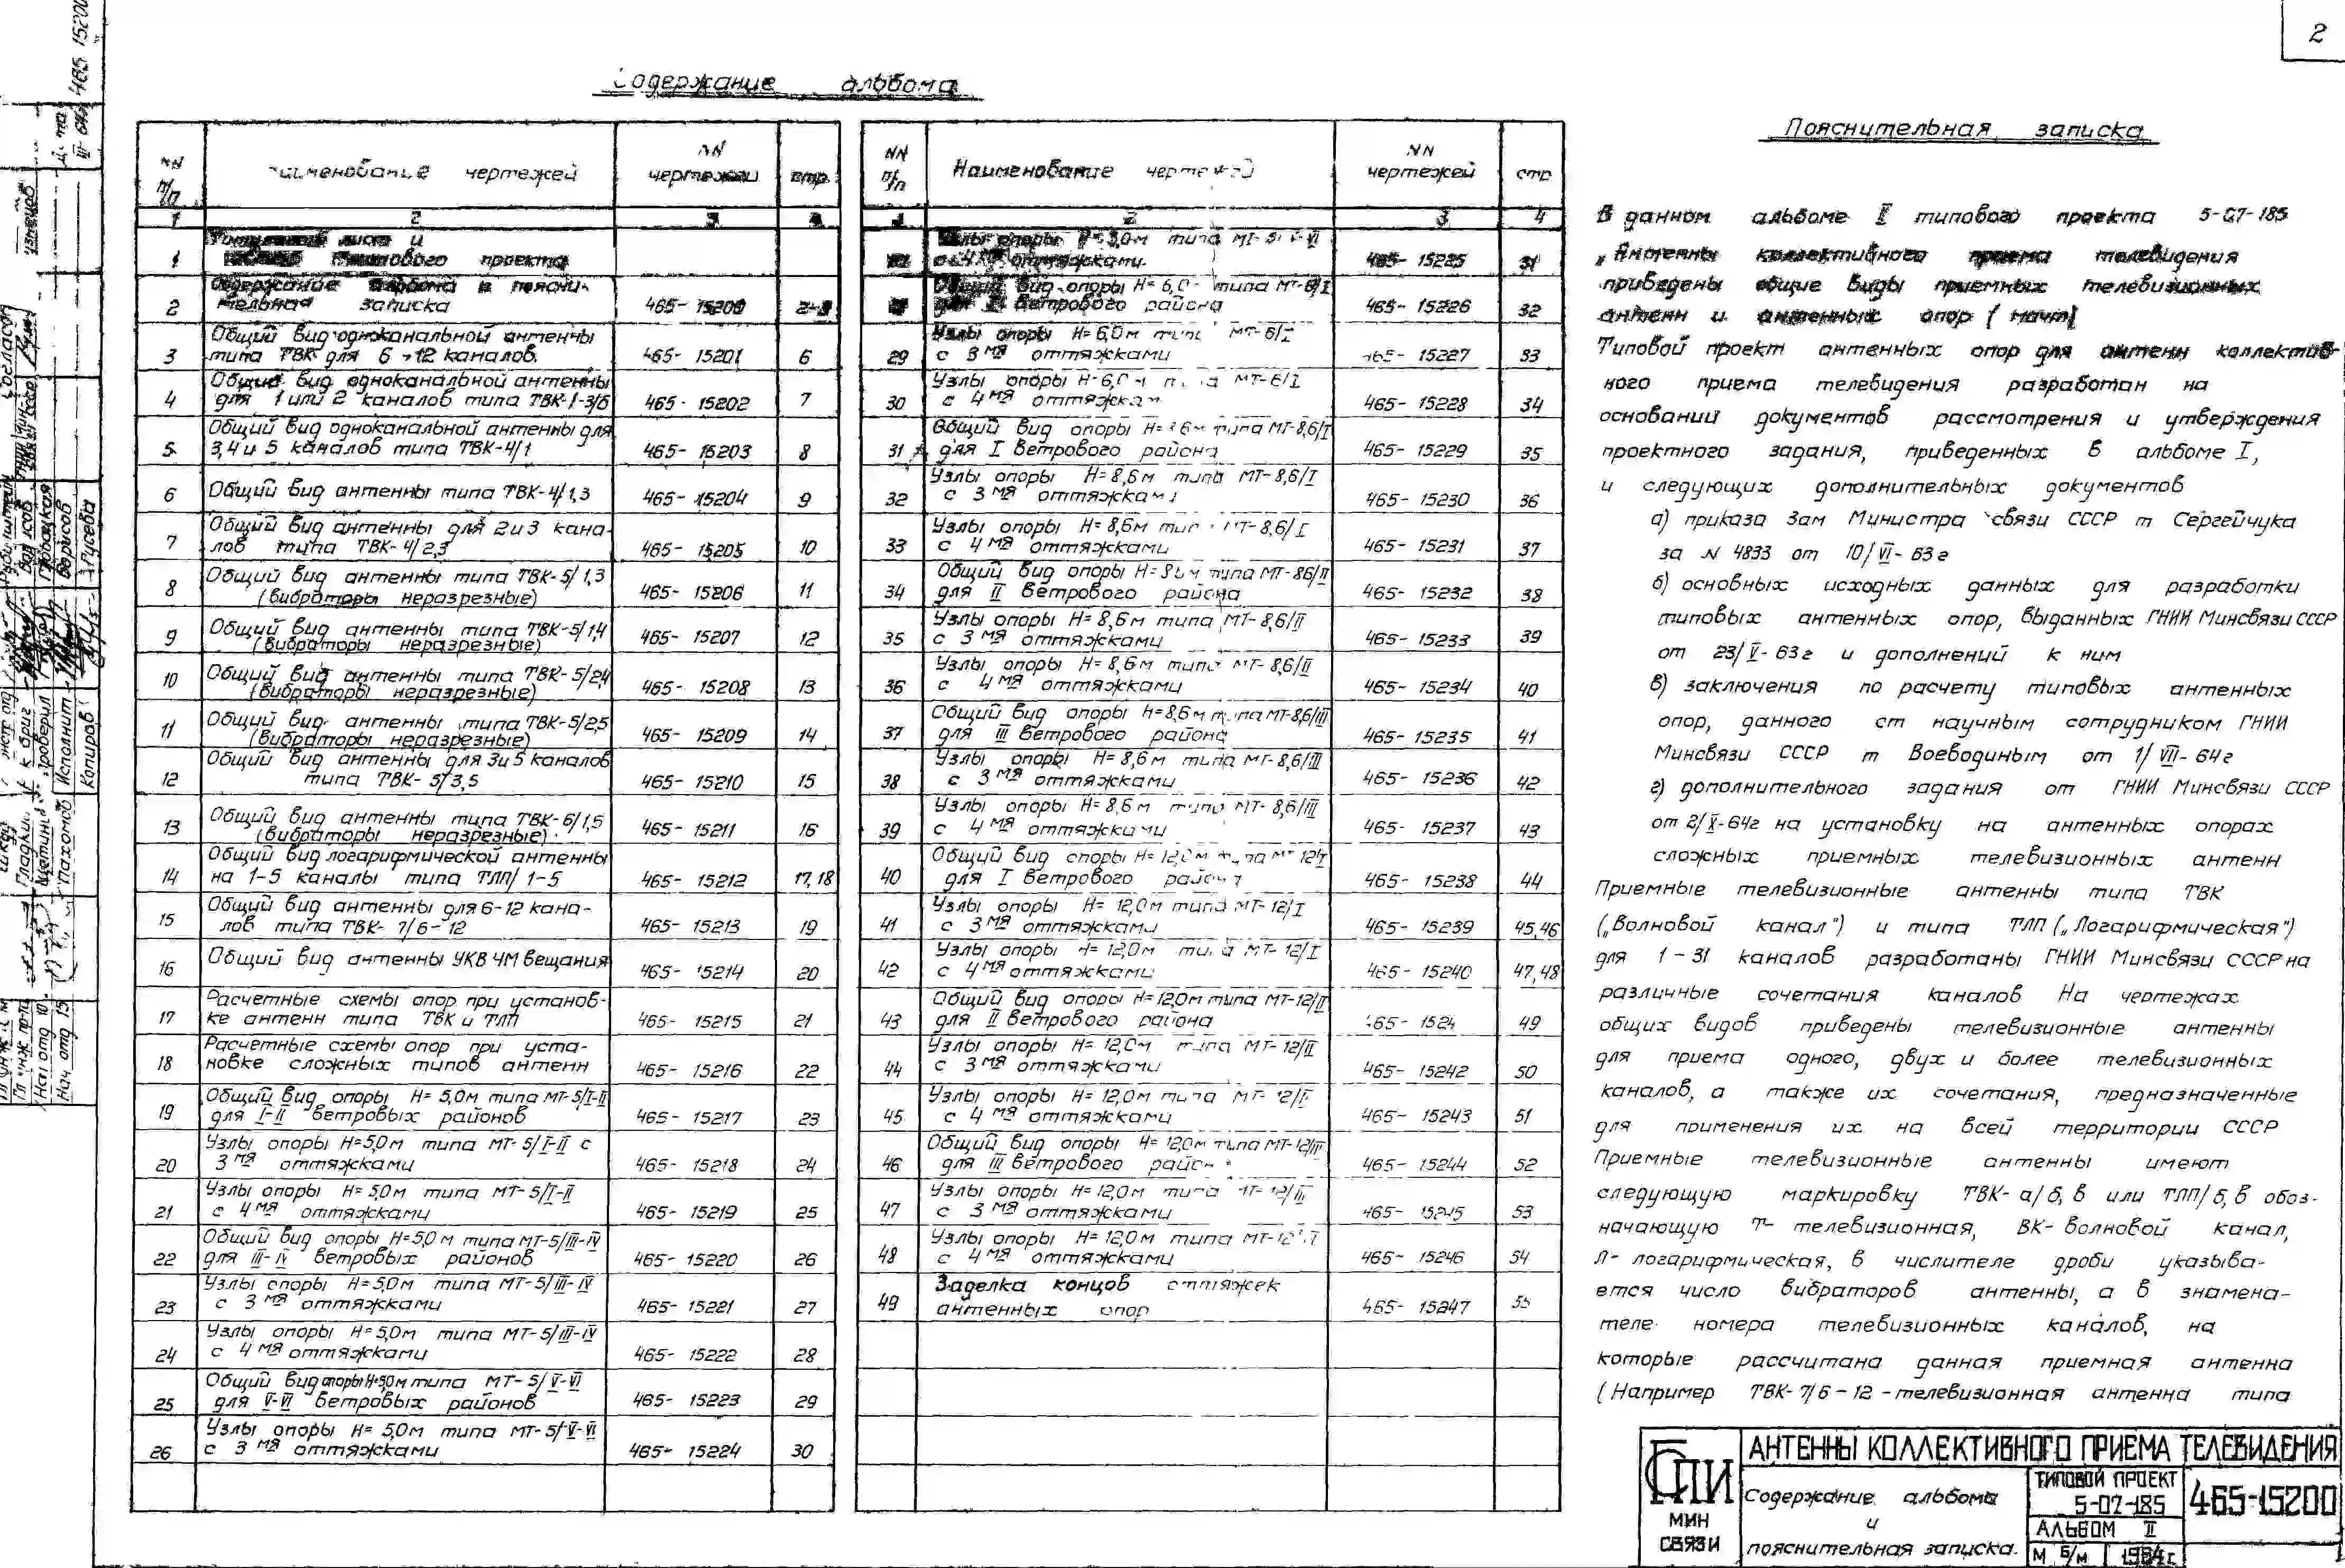 2
Содержание альбома
NN п/п
Наименование чертежей
NN чертежей
стр.
1 2 3 4
1 лист и
типового проекта
2 Содержание альбома и поясни-
тельная записка 465- 15200 2-
3 Общий вид одноканальной антенны
типа ТВК для 6 12 каналов. 465- 15201 6
4 Общий вид одноканальной антенны
для 1 или 2 каналов типа 465- 15202 7
5 Общий вид одноканальной антенны для
3,4 и 5 каналов типа ТВК-4/1 465- 15203 8
6 Общий вид антенны типа ТВК-4/1,3 465- 15204 9
7 Общий вид антенны для 2 и 3 кана-
лов типа ТВК-4/2,3 465- 15205 10
8 Общий вид антенны типа ТВК-5/1,3
(вибраторы неразрезные) 465- 15206 11
9 Общий вид антенны типа ТВК-5/1,4
(вибраторы неразрезные) 465- 15207 12
10 Общий вид антенны типа ТВК-5/2,4
(вибраторы неразрезные) 465- 15208 13
11 Общий вид антенны типа ТВК-5/2,5
(вибраторы неразрезные) 465- 15209 14
12 Общий вид антенны для 3 и 5 каналов
типа ТВК-5/3,5 465- 15210 15
13 Общий вид антенны типа ТВК-6/1,5
(вибраторы неразрезные) 465- 15211 16
14 Общий вид логарифмической антенны
на 1-5 каналы типа ТЛП/1-5 465- 15212 17,18
15 Общий вид антенны для 6-12 кана-
лов типа ТВК-7/6-12 465- 15213 19
16 Общий вид антенны УКВ ЧМ вещания 465- 15214 20
17 Расчетные схемы опор при установ-
ке антенн типа ТВК и ТЛП 465- 15215 21
18 Расчетные схемы опор при уста-
новке сложных типов антенн 465- 15216 22
19 Общий вид опоры Н=5,0м типа МТ-5/I-II
для I-II ветровых районов 465- 15217 23
20 Узлы опоры Н=5,0м типа МТ-5/I-II с
3мя оттяжками 465- 15218 24
21 Узлы опоры Н=5,0м типа МТ-5/I-II
с 4мя оттяжками 465- 15219 25
22 Общий вид опоры Н=5,0м типа МТ-5/III-IV
для III-IV ветровых районов 465- 15220 26
23 Узлы опоры Н=5,0м типа МТ-5/III-IV
с 3мя оттяжками 465- 15221 27
24 Узлы опоры Н=5,0м типа МТ-5/III-IV
с 4мя оттяжками 465- 15222 28
25 Общий вид опоры Н=5,0м типа МТ-5/V-VI
для V-VI ветровых районов 465- 15223 29
26 Узлы опоры Н=5,0м типа МТ-5/V-VI
с 3мя оттяжками 465- 15224 30
NN п/п
Наименование чертежей
NN чертежей
стр
1 2 3 4
Узлы опоры типа
с 4мя оттяжками. 465- 15225 31
Общий вид опоры Н=6,0 типа МТ-6/I
для I ветрового района 465- 15226 32
29 Узлы опоры Н=6,0м типа МТ-6/I
с 3мя оттяжками 465- 15227 33
30 Узлы опоры Н-6,0м типа МТ-6/I
с 4мя оттяжкам 465- 15228 34
31 Общий вид опоры Н= типа МТ-8,6/I
для I ветрового района 465- 15229 35
32 Узлы опоры Н=8,6м типа МТ-8,6/I
с 3мя оттяжкам 465- 15230 36
33 Узлы опоры Н=8,6м тип МТ-8,6/I
с 4мя оттяжками 465- 15231 37
34 Общий вид опоры типа МТ-86/II
для II ветрового района 465- 15232 38
35 Узлы опоры Н=8,6м типа МТ-8,6/II
с 3мя оттяжками 465- 15233 39
36 Узлы опоры Н=8,6м типа МТ-8,6/II
с 4мя оттяжками 465- 15234 40
37 Общий вид опоры Н=8,6м типа МТ-8,6/III
для III ветрового района 465- 15235 41
38 Узлы опоры Н=8,6м типа МТ-8,6/III
с 3мя оттяжками 465- 15236 42
39 Узлы опоры Н=8,6м типа МТ-8,6/III
с 4мя оттяжками 465- 15237 43
40 Общий вид опоры Н=12,0м типа
для I ветрового района 465- 15238 44
41 Узлы опоры Н=12,0м типа МТ-12/I
с 3мя оттяжками 465- 15239 45,46
42 Узлы опоры Н=12,0м типа МТ-12/I
с 4мя оттяжками 465- 15240 47,48
43 Общий вид опоры Н=12,0м типа МТ-12/II
для II ветрового района 465- 1524 49
44 Узлы опоры Н=12,0м типа МТ-12/II
с 3мя оттяжками 465- 15242 50
45 Узлы опоры Н=12,0м типа
с 4мя оттяжками 465- 15243 51
46 Общий вид опоры Н=12,0м типа МТ-12/III
для III ветрового район 465- 15244 52
47 Узлы опоры Н=12,0м типа МТ-12/III
с 3мя оттяжками 465- 15245 53
48 Узлы опоры Н=12,0м типа
с 4мя оттяжками 465- 15246 54
49 Заделка концов оттяжек
антенных опор 465- 15247 55
Пояснительная записка
В данном альбоме II типового проекта 5-07-185
„Антенны коллективного приема телевидения
приведены общие виды приемных телевизионных
антенн и антенных опор (мачт)
Типовой проект антенных опор для антенн коллектив-
ного приема телевидения разработан на
основании документов рассмотрения и утверждения
проектного задания, приведенных в альбоме I,
и следующих дополнительных документов
а) приказа Зам Министра связи СССР т Сергейчука
за N 4833 от 10/VI-63г
б) основных исходных данных для разработки
типовых антенных опор, выданных ГНИИ Минсвязи СССР
от 23/V-63г и дополнений к ним
в) заключения по расчету типовых антенных
опор, данного ст научным сотрудником ГНИИ
Минсвязи СССР т Воеводиным от 1/VII-64г
г) дополнительного задания от ГНИИ Минсвязи СССР
от 2/X-64г на установку на антенных опорах
сложных приемных телевизионных антенн
Приемные телевизионные антенны типа ТВК
(„Волновой канал") и типа ТЛП („Логарифмическая")
для 1-31 каналов разработаны ГНИИ Минсвязи СССР на
различные сочетания каналов На чертежах
общих видов приведены телевизионные антенны
для приема одного, двух и более телевизионных
каналов, а также их сочетания, предназначенные
для применения их на всей территории СССР
Приемные телевизионные антенны имеют
следующую маркировку ТВК-а/б,в или ТЛП/б,в обоз-
начающую Т- телевизионная, ВК- волновой канал,
Л- логарифмическая, в числителе дроби указыва-
ется число вибраторов антенны, а в знамена-
теле номера телевизионных каналов, на
которые рассчитана данная приемная антенна
(Например ТВК-7/6-12-телевизионная антенна типа
ГСПИ
МИН
СВЯЗИ
АНТЕННЫ КОЛЛЕКТИВНОГО ПРИЕМА ТЕЛЕВИДЕНИЯ
Содержание альбома
и
пояснительная записка.
ТИПОВОЙ ПРОЕКТ
5-07-185
АЛЬБОМ II
М б/м 1964г.
465-15200
465 15200
Исполнит
Борисов
Копиров
Гусева
Нач отд 15